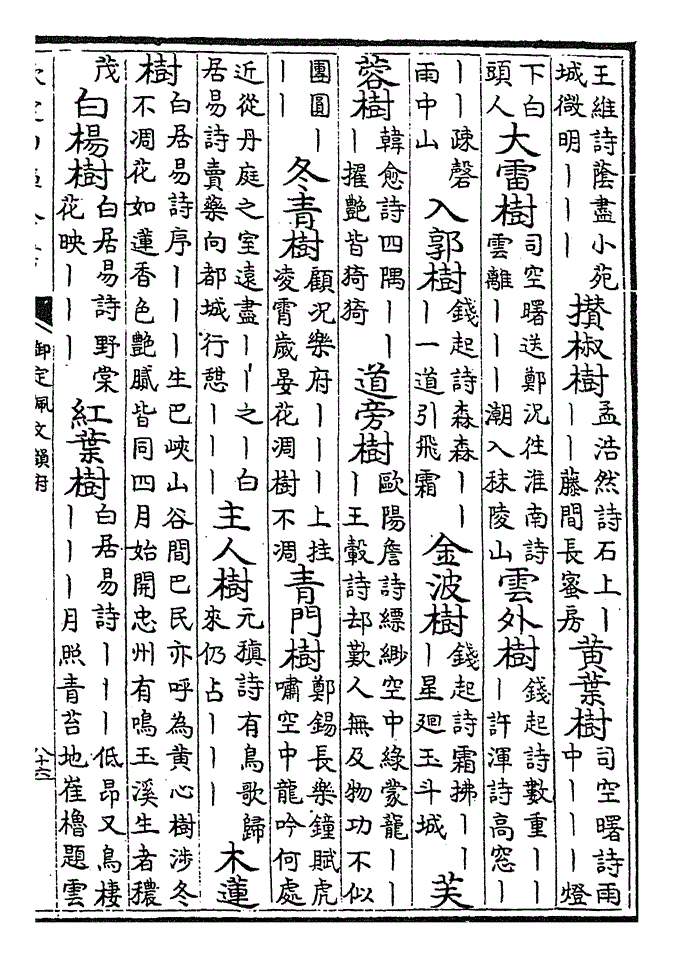 王維詩蔭盡小苑城微明｜｜｜　攢椒樹孟浩然詩石上｜｜｜藤間長蜜房　黄葉樹司空曙詩雨中｜｜｜燈
下白頭人　大雷樹司空曙送鄭況往淮南詩雲離｜｜｜潮入秣陵山　雲外樹錢起詩數重｜｜｜許渾詩高窓｜｜
｜｜疎磬雨中山　入郭樹錢起詩森森｜｜｜一道引飛霜　金波樹錢起詩霜拂｜｜｜星廻玉斗城　芙
蓉樹韓愈詩四隅｜｜｜擢艷皆猗猗　道旁樹歐陽詹詩縹緲空中綠蒙龍｜｜｜王轂詩却歎人無及物功不似
團圓｜｜｜　冬青樹顧況樂府｜｜｜上挂凌霄歲晏花凋樹不凋　青門樹鄭錫長樂鐘賦虎嘯空中龍吟何處
近從丹庭之室遠盡｜｜之｜白居易詩賣藥向都城行憇｜｜｜　主人樹元稹詩有鳥歌歸來仍占｜｜｜　木蓮
樹白居易詩序｜｜｜生巴峽山谷間巴民亦呼為黄心樹涉冬不凋花如蓮香色艷膩皆同四月始開忠州有鳴玉溪生者穠
茂　白楊樹白居易詩野棠花映｜｜｜　紅葉樹白居易詩｜｜｜低昂又鳥棲｜｜｜月照青苔地崔櫓題雲
御定佩文韻府
八十六